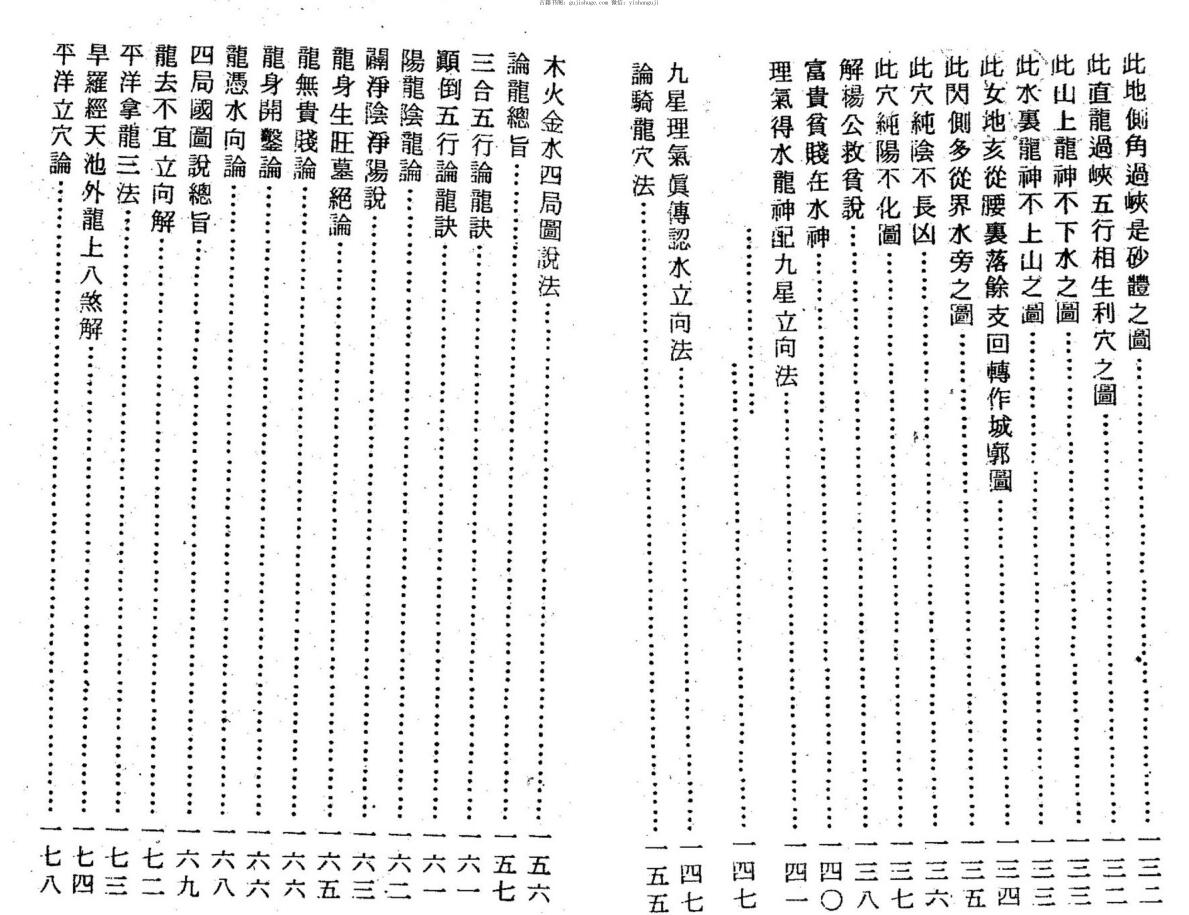 古籍书阁：gujishuge.com 微信：yinhonguji
此地側角過峽是砂體之圖……一三二
此直龍過峽五行相生利穴之圖……一三二
此山上龍神不下水之圖……一三三
此水裏龍神不上山之圖……一三三
此女地亥從腰裏落餘支回轉作城郭圖……一三四
此閃側多從界水旁之圖……一三五
此穴純陰不長凶……一三六
此穴純陽不化圖……一三七
解楊公救貧說……一三八
富貴貧賤在水神……一四〇
理氣得水龍神配九星立向法……一四一
……一四七
九星理氣眞傳認水立向法……一四七
論騎龍穴法……一五五
木火金水四局圖說法……一五六
論龍總旨……一五七
三合五行論龍訣……一六一
顛倒五行論龍訣……一六一
陽龍陰龍論……一六二
闢淨陰淨陽說……一六三
龍身生旺墓絕論……一六五
龍無貴賤論……一六六
龍身開鑿論……一六六
龍憑水向論……一六八
四局國圖說總旨……一六九
龍去不宜立向解……一七二
平洋拿龍三法……一七三
旱羅經天池外龍上八煞解……一七四
平洋立穴論……一七八